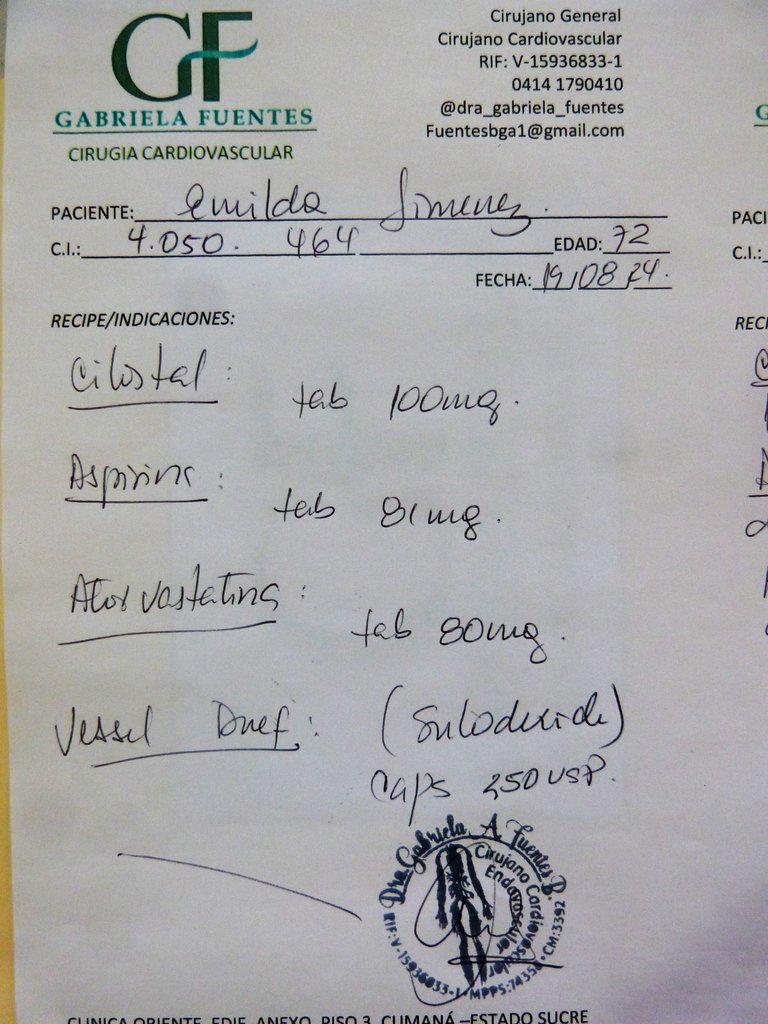 GF
GABRIELA FUENTES
CIRUGIA CARDIOVASCULAR
Cirujano General
Cirujano Cardiovascular
RIF: V-15936833-1
0414 1790410
@dra_gabriela_fuentes
Fuentesbga1@gmail.com
PACIENTE: Emilda Jimenez.
C.I.: 4.050. 464 EDAD: 72
FECHA: 19/08/24.
RECIPE/INDICACIONES:
Cilostal: tab 100mg.
Aspirina: tab 81mg.
Atorvastatina: tab 80mg.
Vessel Duef: (Sulodexide)
caps 250 USP.
Dra. Gabriela A. Fuentes B.
Cirujano Cardiovascular
Endovascular
RIF: V-15936833-1 • MPPS:74356 • CM:3392
CLINICA ORIENTE, EDIF. ANEXO, PISO 3, CUMANÁ –ESTADO SUCRE
G
PACI
C.I.:
RECI